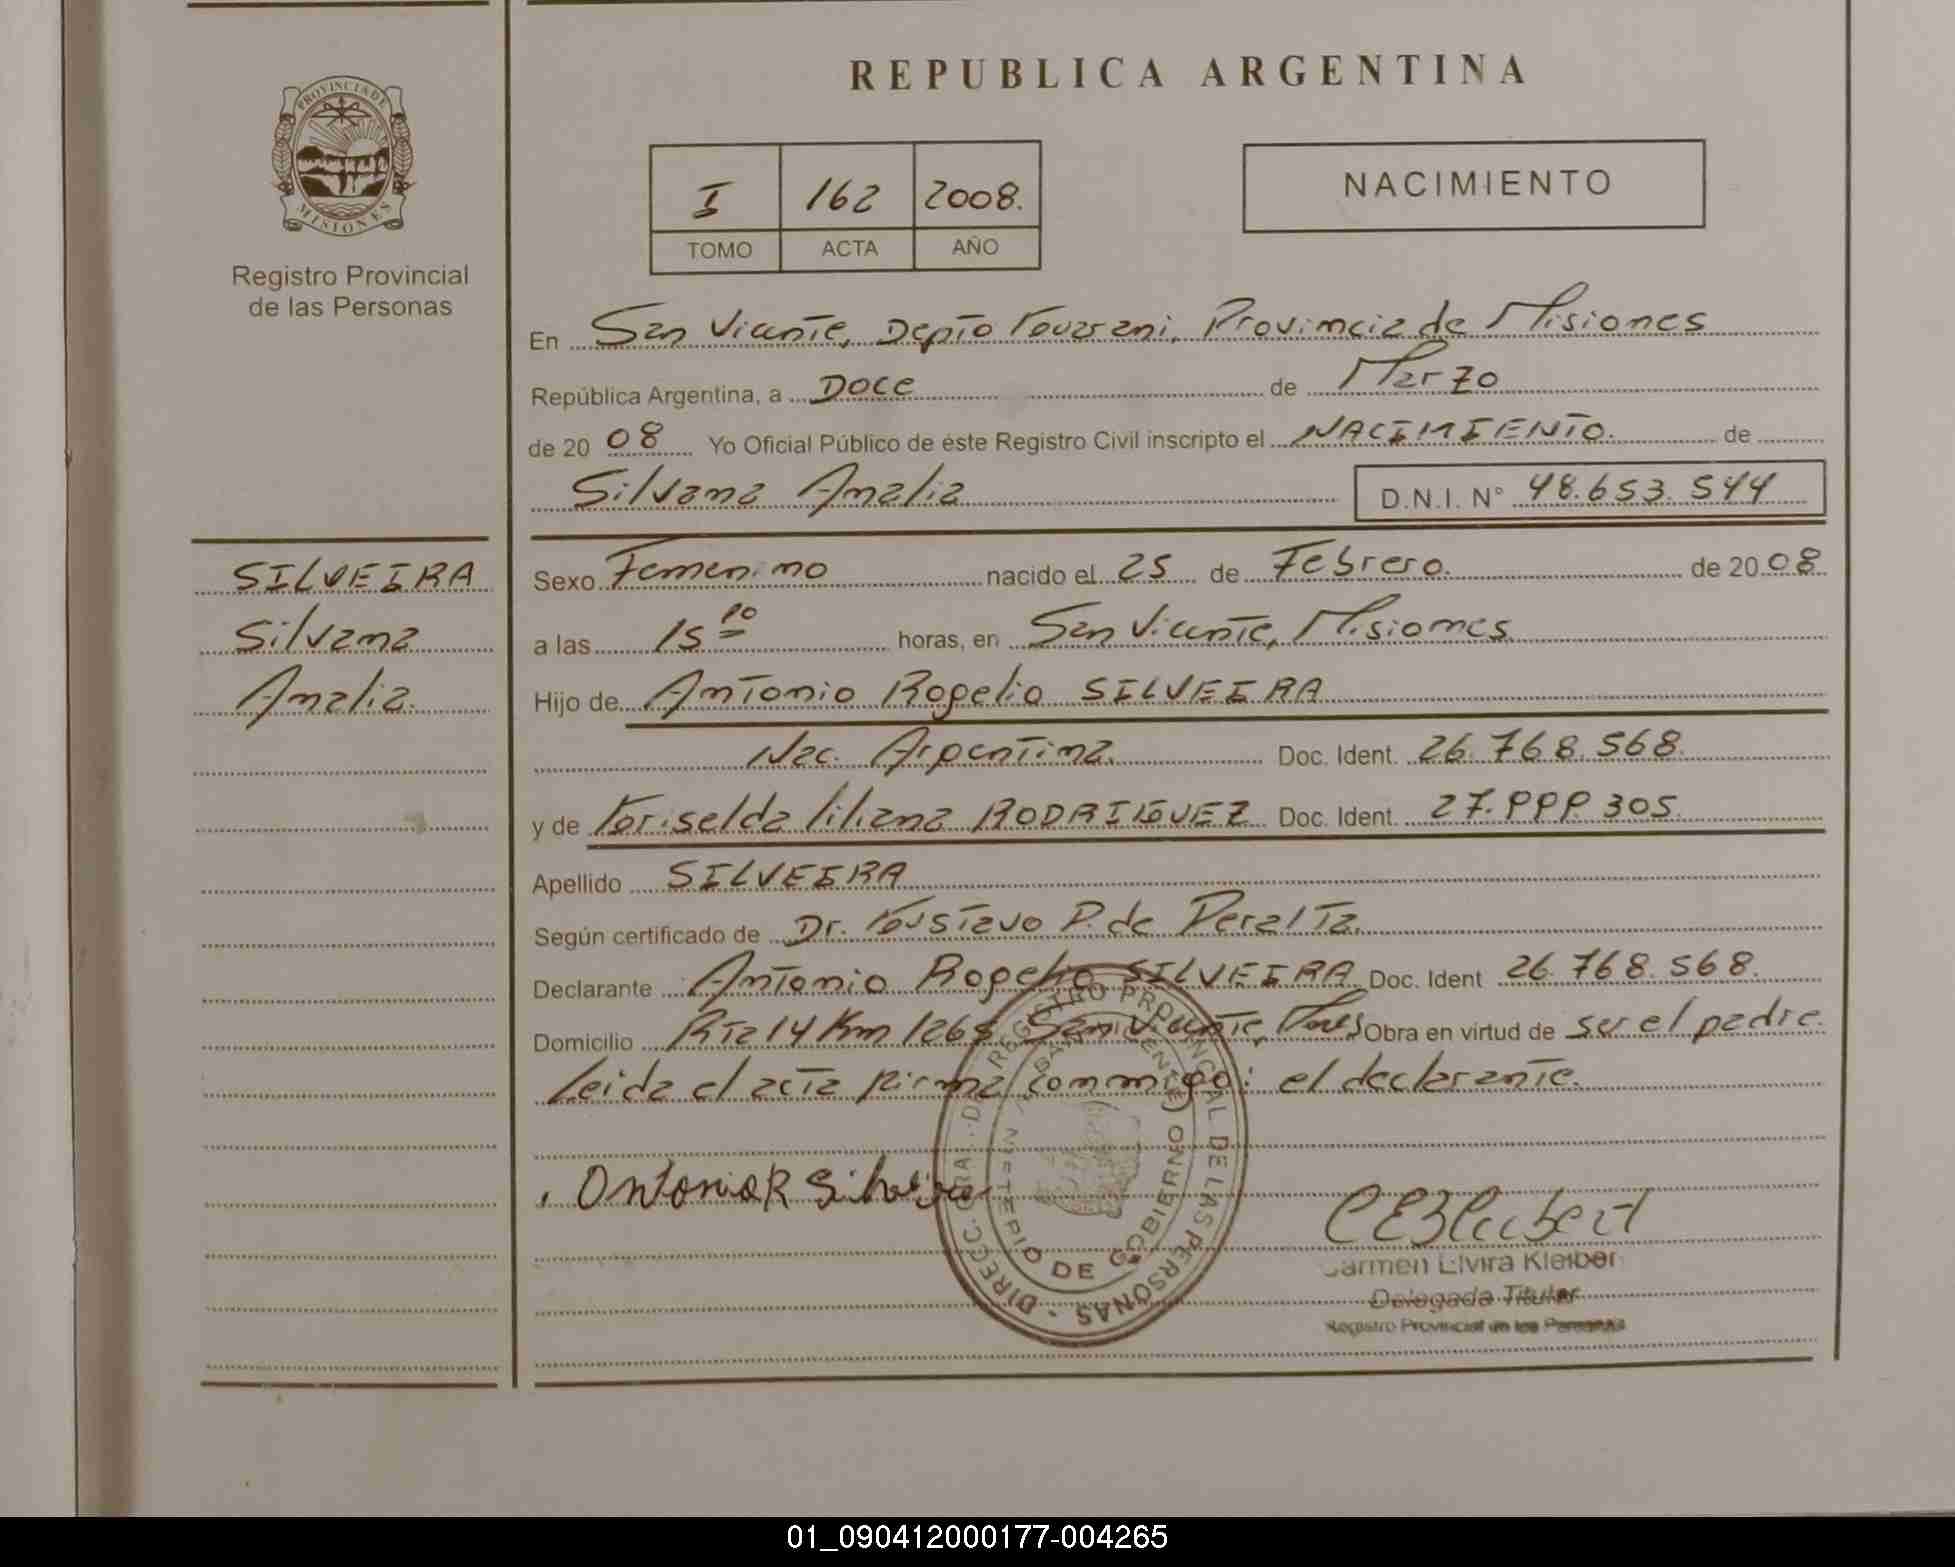 REPUBLICA ARGENTINA
PROVINCIA DE
MISIONES
Registro Provincial
de las Personas
I 162 2008.
TOMO ACTA AÑO
NACIMIENTO
En San Vicente, Depto Guarani, Provincia de Misiones
República Argentina, a Doce de Marzo
de 2008 Yo Oficial Público de éste Registro Civil inscripto el NACIMIENTO. de
Silvana Analia D.N.I. N° 48.653.544
SILVEIRA
Silvana
Analia.
Sexo Femenino nacido el 25 de Febrero. de 2008
a las 15 10 horas, en San Vicente, Misiones
Hijo de Antonio Rogelio SILVEIRA
Nac. Argentina. Doc. Ident. 26.768.568.
y de Griselda Liliana RODRIGUEZ Doc. Ident. 27.999.305.
Apellido SILVEIRA
Según certificado de Dr. Gustavo P. de Peralta.
Declarante Antonio Rogelio SILVEIRA Doc. Ident 26.768.568.
Domicilio Rta 14 Km 1268 San Vicente, Mnes Obra en virtud de ser el padre.
Leida el acta firma conmigo: el declarante.
Antonio R Silveira
DIRECC. GRAL. DEL REGISTRO PROVINCIAL DE LAS PERSONAS
DE GOBIERNO
Carmen Elvira Kleiber
Delegada Titular
Registro Provincial de las Personas
01_090412000177-004265